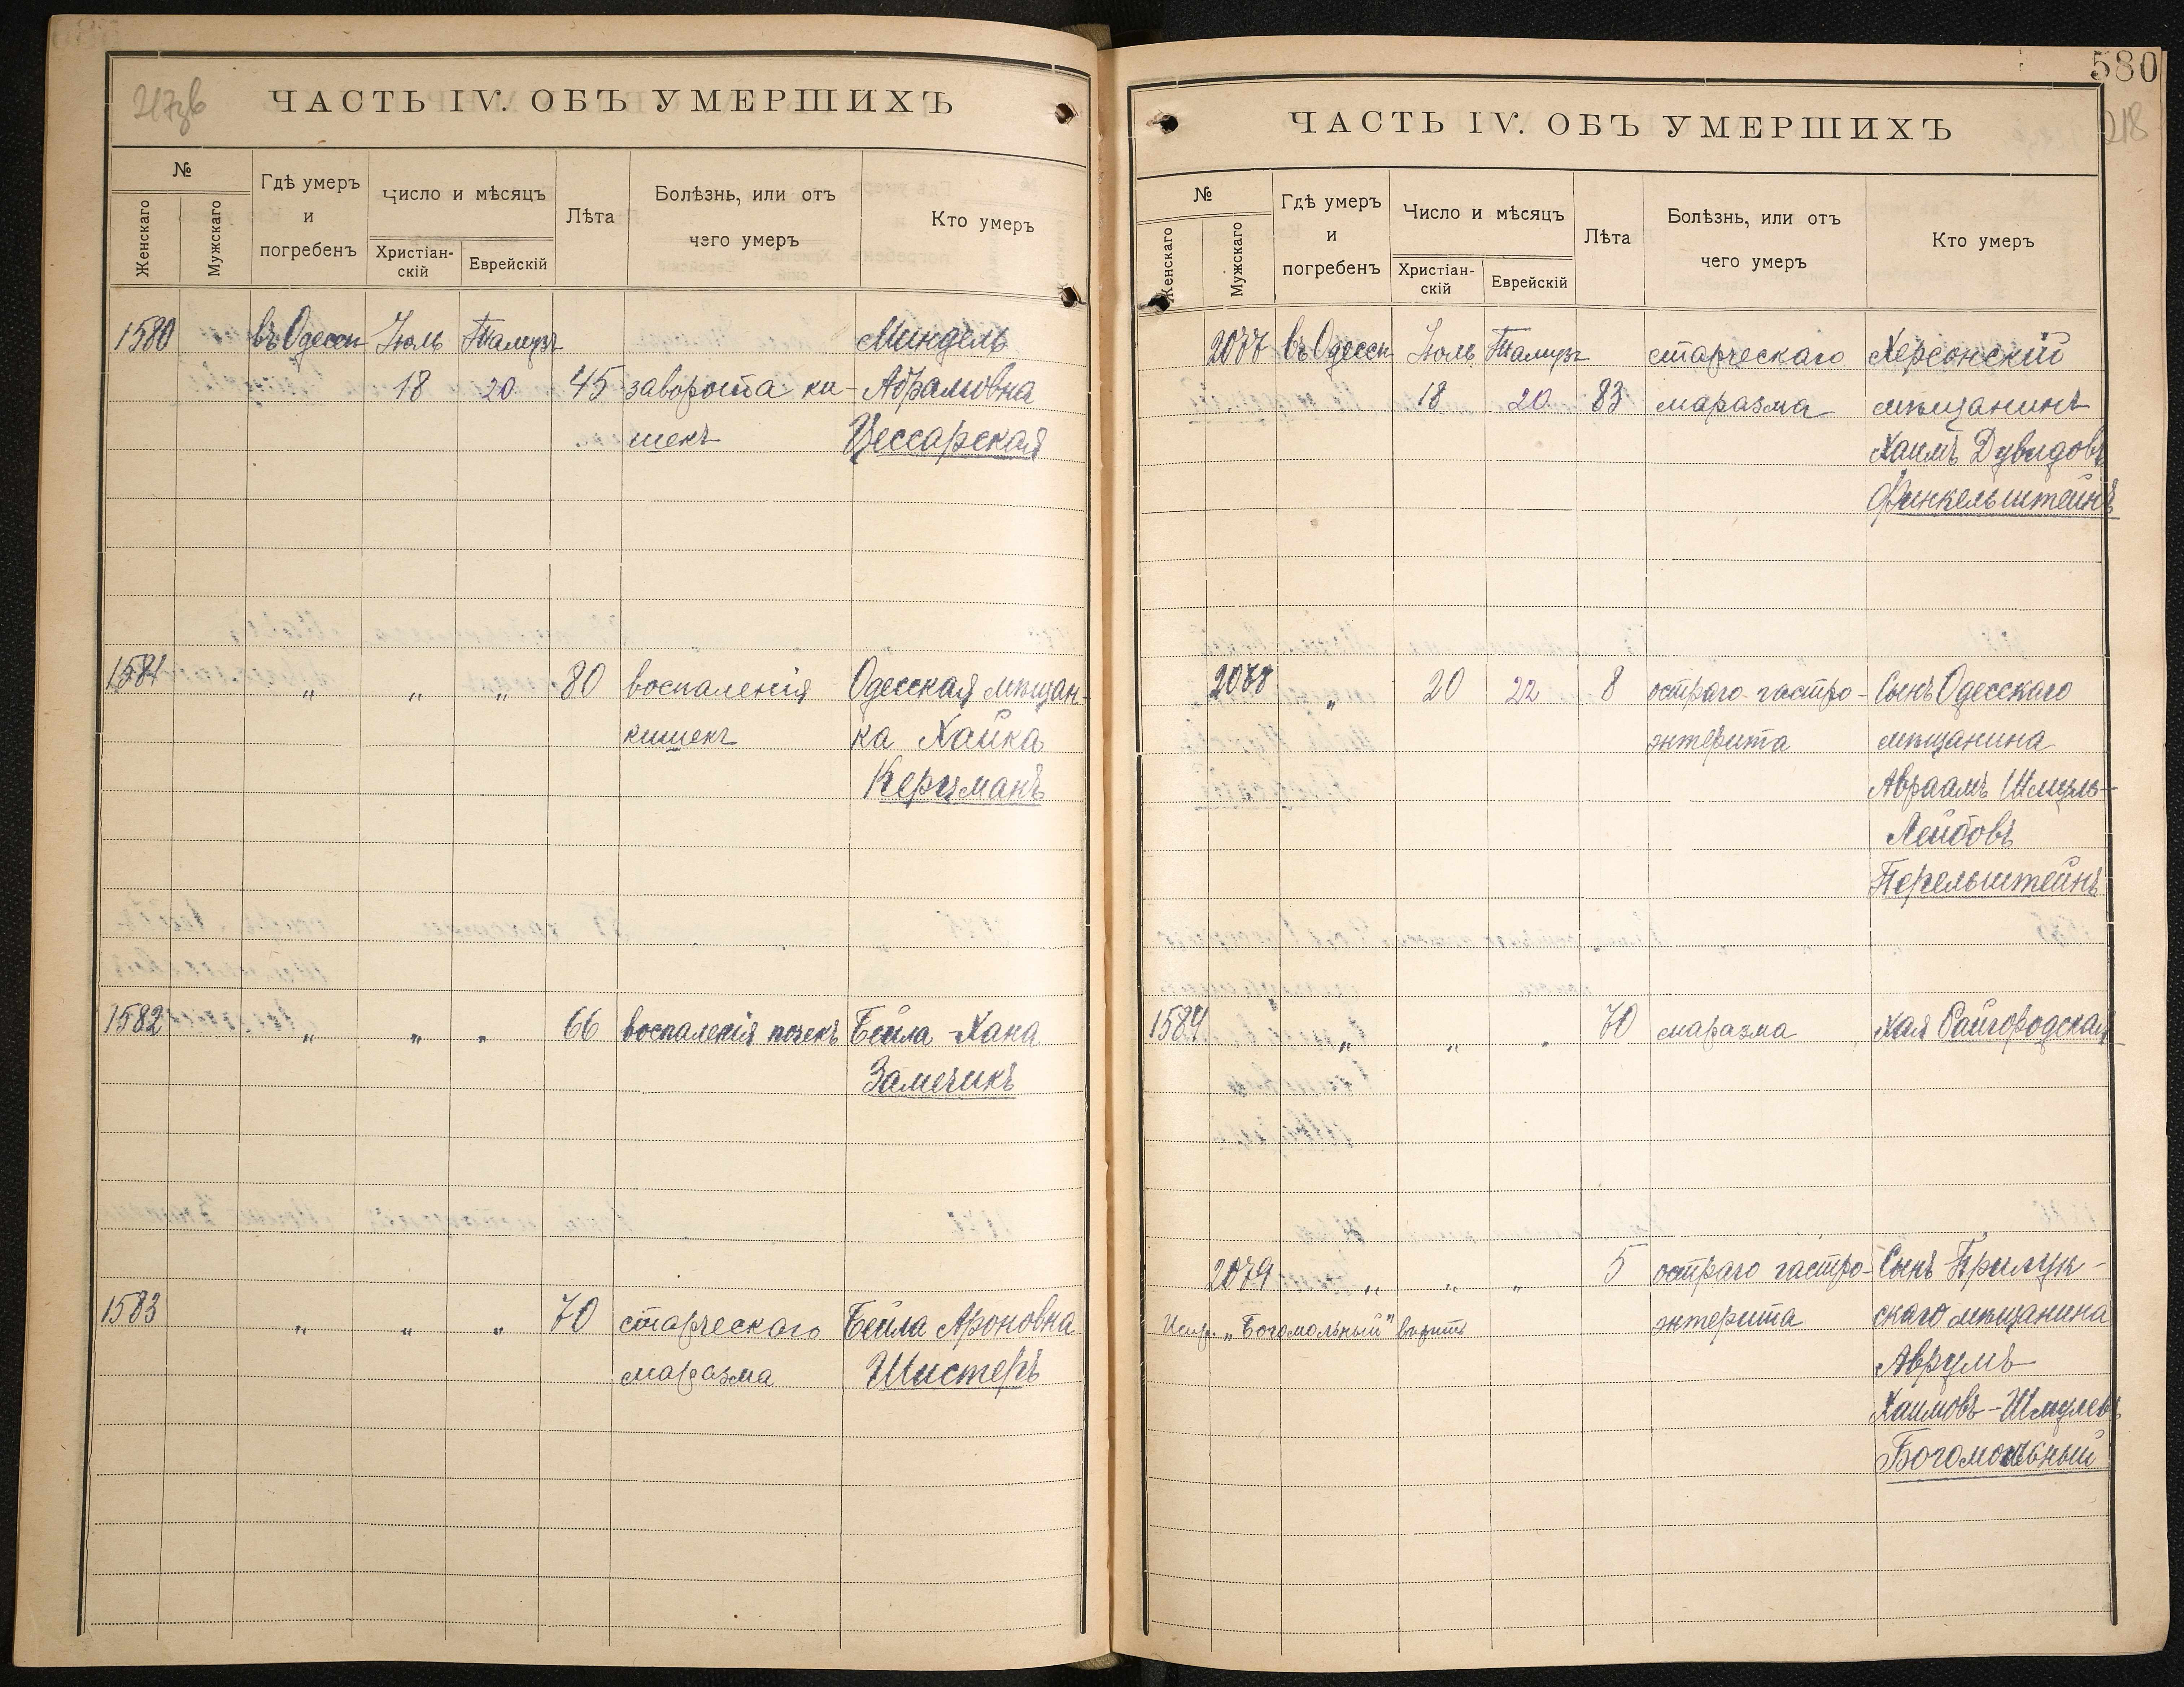 217об
ЧАСТЬ IV. ОБЪ УМЕРШИХЪ
№
Женскаго
Мужскаго
Гдѣ умеръ и погребенъ
Число и мѣсяцъ
Христіан-скій
Еврейскій
Лѣта
Болѣзнь, или отъ чего умеръ
Кто умеръ
1580 въ Одессѣ Іюль Тамузъ Миндель
18 20 45 заворота ки- Абрамовна
шекъ Цессарская
1581 „ „ „ 80 воспаленія Одесская мѣщан-
кишекъ ка Хайка
Керцманъ
1582 „ „ „ 66 воспаленія почекъ Бейла-Хана
Замечикъ
1583 „ „ „ 70 старческаго Бейла Ароновна
маразма Шистеръ
580
218
ЧАСТЬ IV. ОБЪ УМЕРШИХЪ
№
Женскаго
Мужскаго
Гдѣ умеръ и погребенъ
Число и мѣсяцъ
Христіан-скій
Еврейскій
Лѣта
Болѣзнь, или отъ чего умеръ
Кто умеръ
2077 въ Одессѣ Іюль Тамузъ старческаго Херсонскій
18 20 83 маразма мѣщанинъ
Хаимъ Дувидовъ
Финкельштейнъ
2078 „ 20 22 8 остраго гастро- Сынъ Одесскаго
энтерита мѣщанина
Авраамъ Шмуль-
Лейбовъ
Перельштейнъ
1584 „ „ „ 70 маразма Хая Райгородская
2079 „ „ „ 5 остраго гастро- Сынъ Прилук-
Испр. „Богомольный" вѣрить энтерита скаго мѣщанина
Аврумъ
Хаимовъ-Шмулевъ
Богомольный